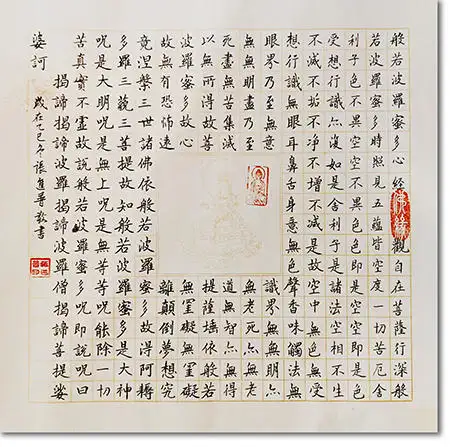 般若波羅蜜多心經觀自在菩薩行深般
若波羅蜜多時照見五蘊皆空度一切苦厄舍
利子色不異空空不異色色即是空空即是色
受想行識亦復如是舍利子是諸法空相不生
不滅不垢不净不增不減是故空中無色無受
想行識無眼耳鼻舌身意無色聲香味觸法無
眼界乃至無意識界無無明亦
無無明盡乃至無老死亦無老
死盡無苦集滅道無智亦無得
以無所得故菩提薩埵依般若
波羅蜜多故心無罣礙無罣礙
故無有恐怖遠離顛倒夢想究
竟涅槃三世諸佛依般若波羅蜜多故得阿耨
多羅三藐三菩提故知般若波羅蜜多是大神
咒是大明咒是無上咒是無等等咒能除一切
苦真實不虛故說般若波羅蜜多咒即說咒曰
揭諦揭諦波羅揭諦波羅僧揭諦菩提娑
婆訶
歲在乙巳冬張進敬書
佛緣